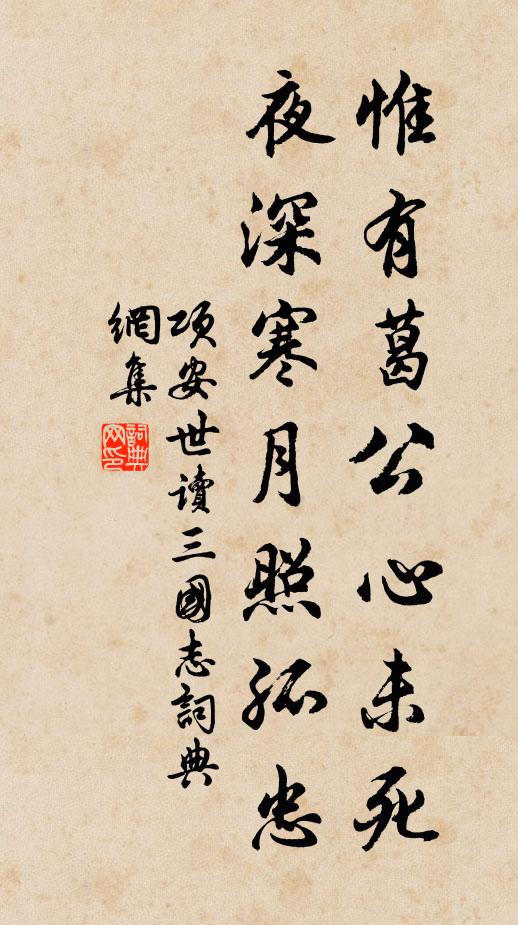 惟有葛公心未死
夜深寒月照孤忠
項安世讀三國志詞典
網集
詞典網印